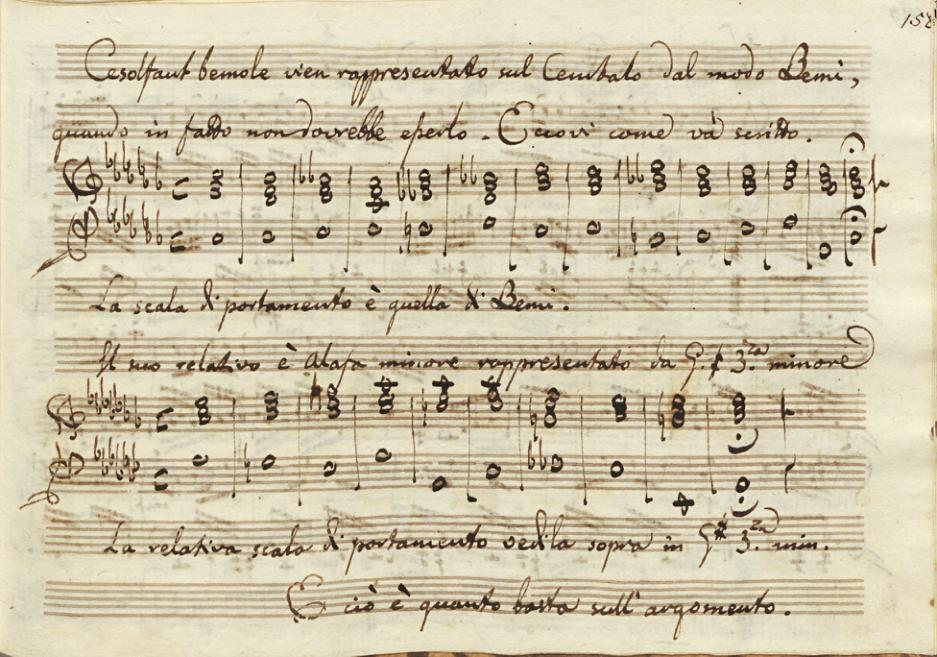 158
Cesolfaut bemole vien rappresentato sul Cembalo dal modo Bemi,
quando in fatto non dovrebbe esserlo. Eccovi come và scritto.
La scala di portamento è quella di Bemi.
Il suo relativo è Alafa minore rappresentato da G. # 3.za minore
La relativa scala di portamento vedila sopra in G# 3.za min.
E ciò è quanto basta sull' argomento.